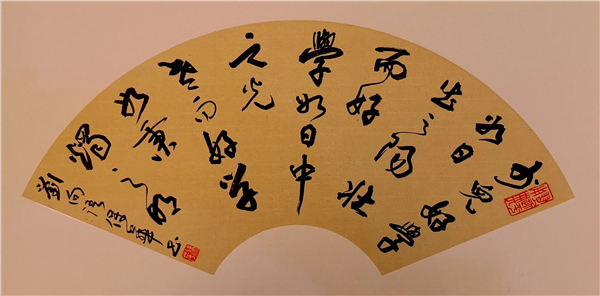 少而好學
如日
出之陽壯
而好
學如日中
之光
老而好学
如秉
燭之明
劉向語